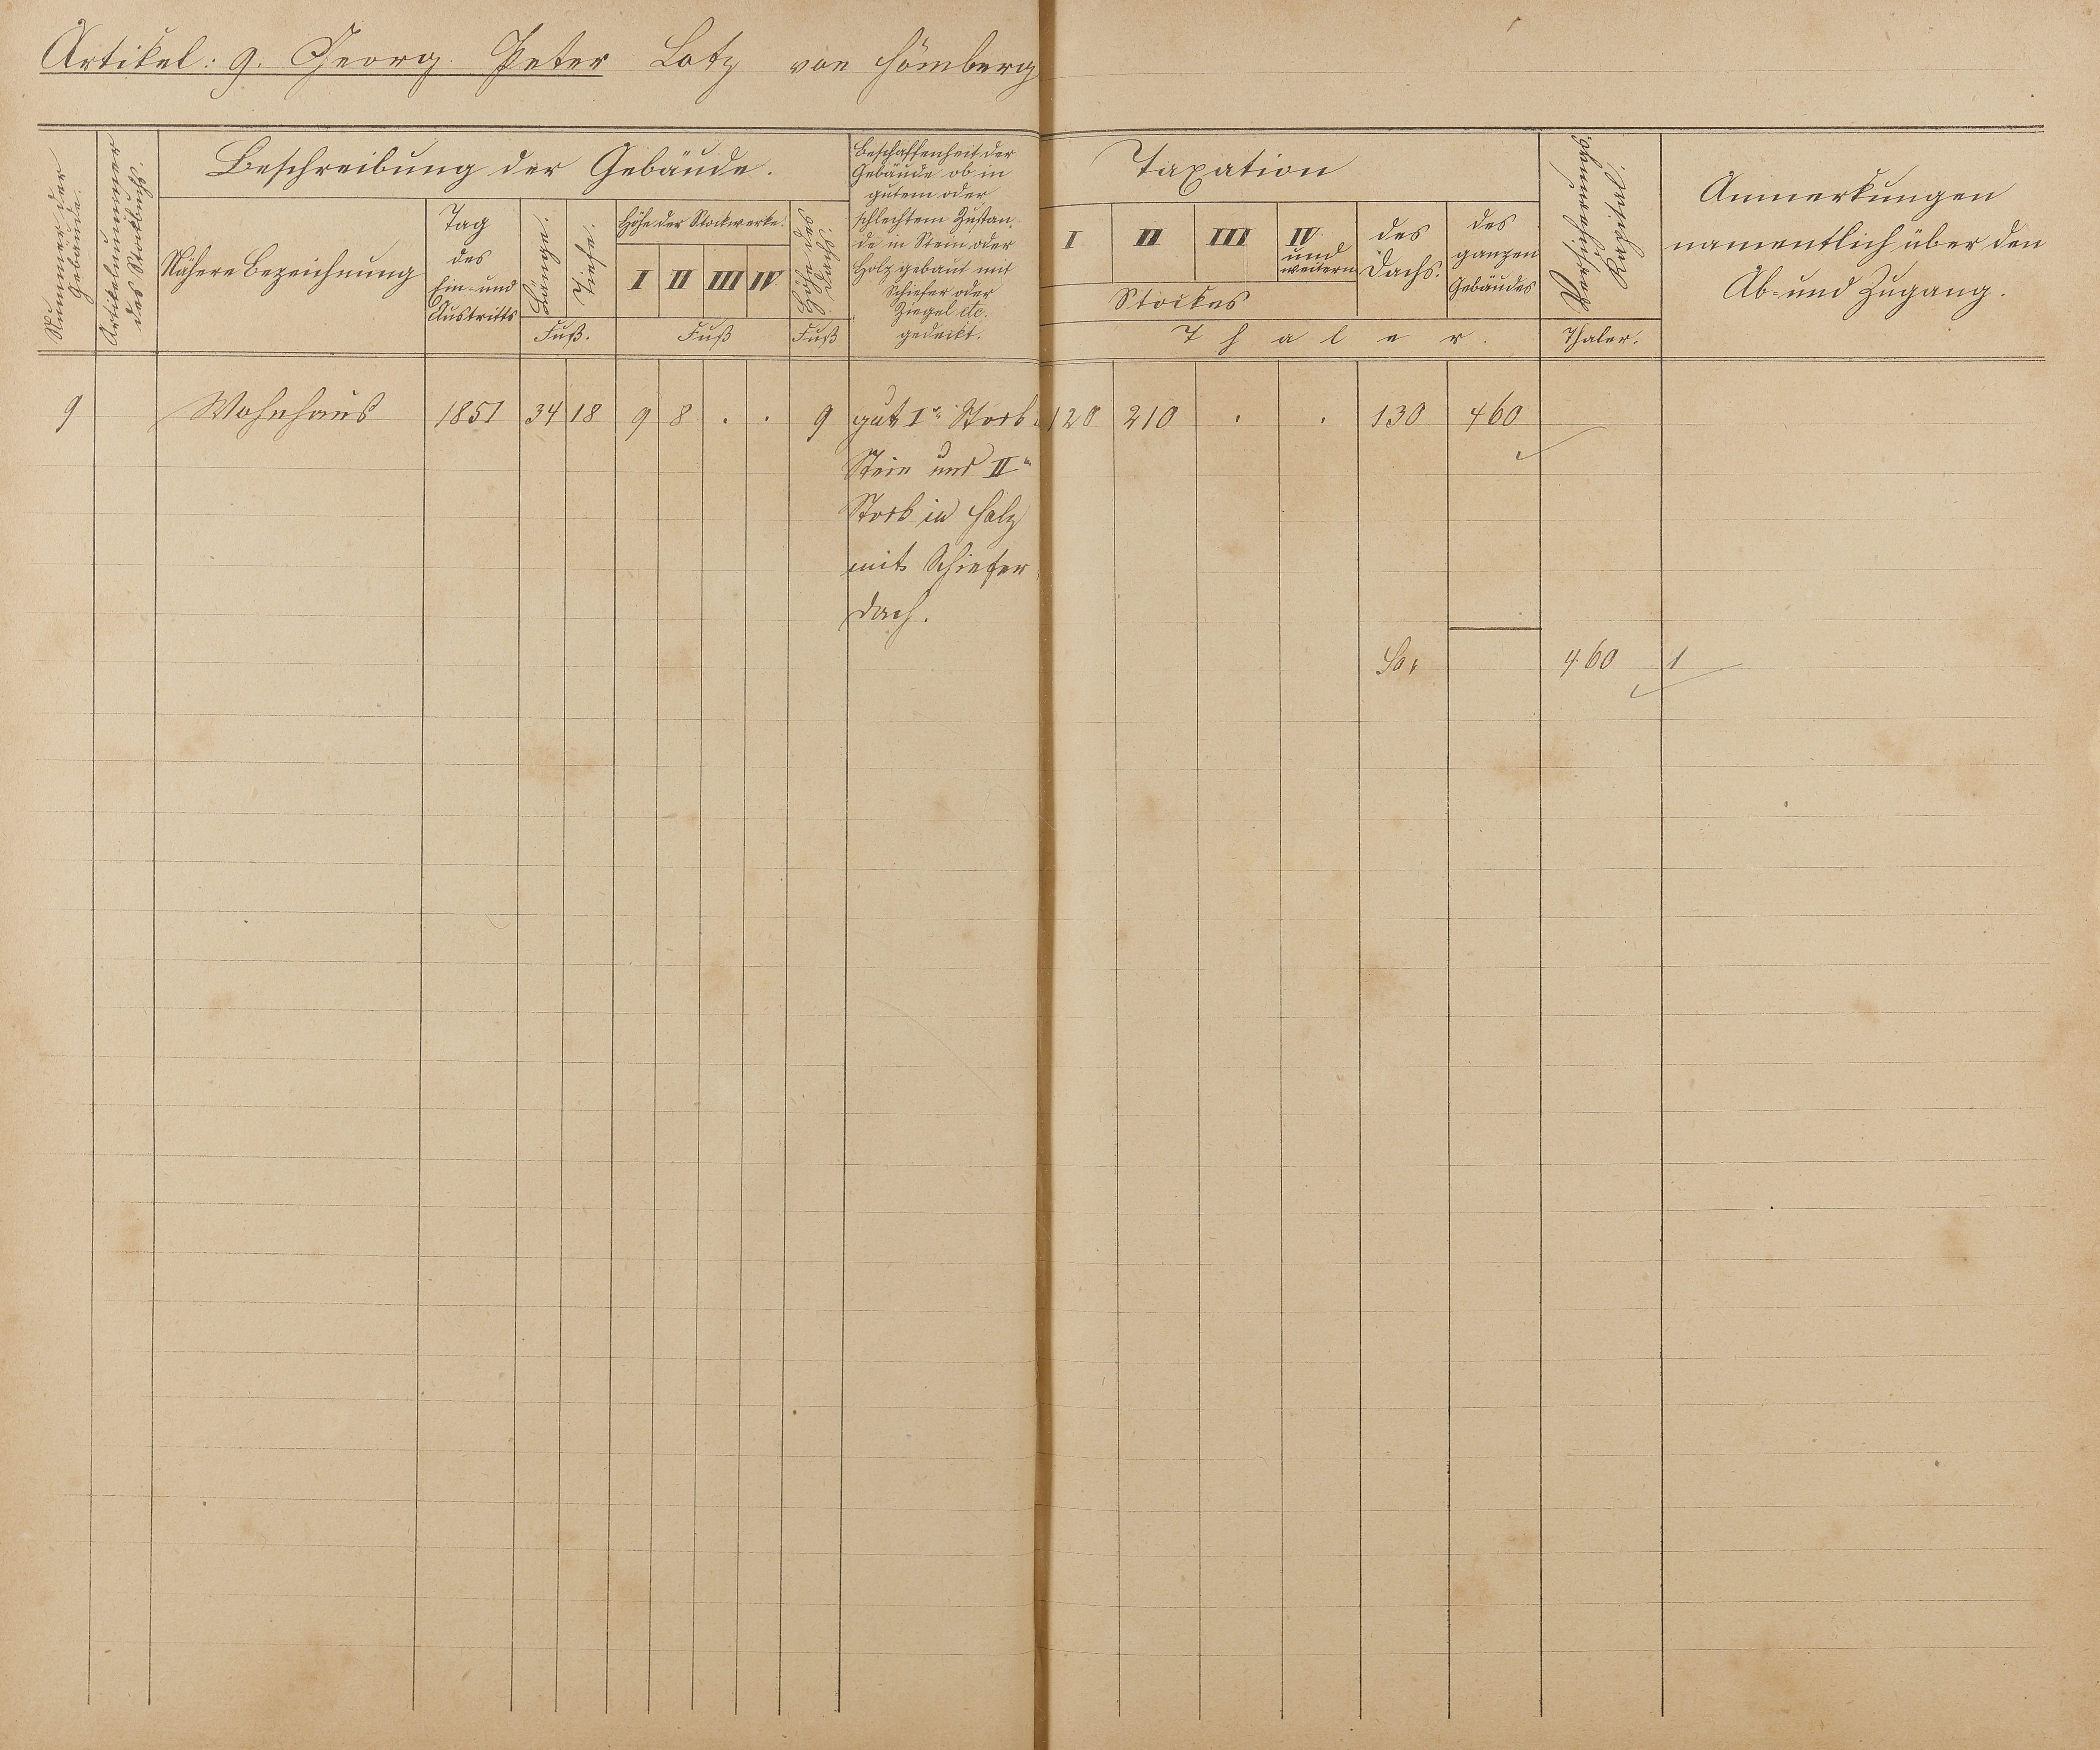 Artikel: 9. Georg Peter Lotz von Hömberg
Nummer der Gebäude.
Artikelnummer des Stockbuchs.
Beschreibung der Gebäude.
Nähere Bezeichnung
Tag
des
Ein- und
Austritts
Länge.
Tiefe.
Fuß.
Höhe der Stockwerke.
I II III IV
Fuß
Höhe des Dachs.
Fuß
Beschaffenheit der
Gebäude ob in
gutem oder
schlechtem Zustan-
de in Stein oder
Holz gebaut mit
Schiefer oder
Ziegel etc.
gedeckt.
Taxation
I II III IV
und
weitern
Stockes
des
Dachs.
des
ganzen
Gebäudes
Thaler.
Thaler.
Anmerkungen
namentlich über den
Ab- und Zugang.
9 Wohnhaus 1851 34 18 9 8 . . 9 gut Ir Stock 120 210 . . 130 460
Stein und IIr
Stock in Holz
mit Schiefer
dach.
460 1